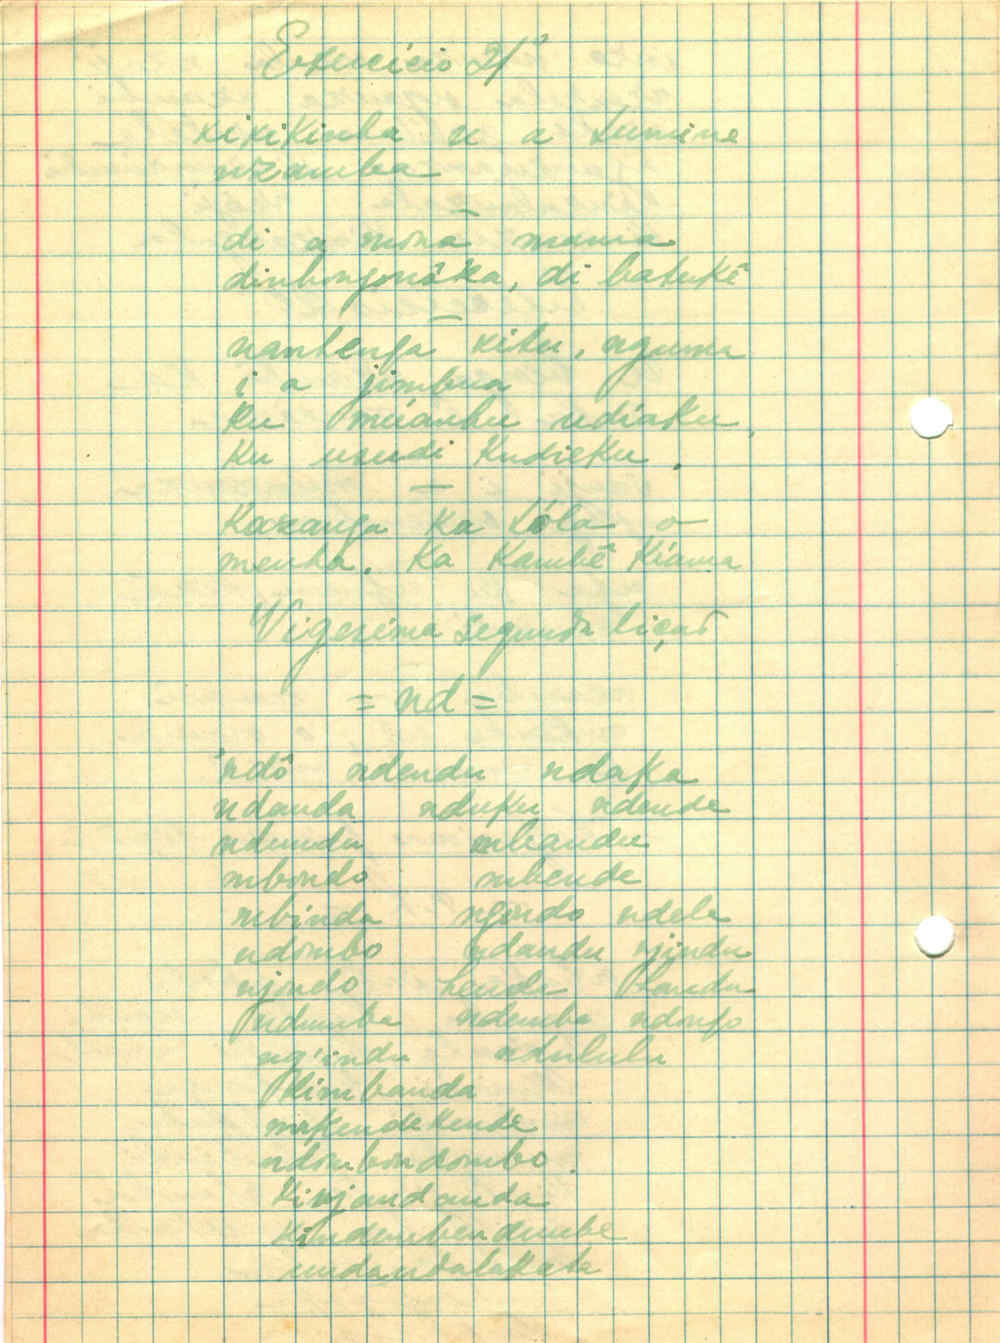 Exercício 21º
kixikinha u a tumine
nzamba
di a nona mama
dinhongonóka, di batukê
nantenga kitu, nguma
i a jimbua
ku múanhu udiaku,
ku usudi kudieku.
Kazanga ka tóla o
menha. Ka kambê kiama
Vigesima segunda liçaõ
= nd =
ndô ndendu ndaka
ndanda nduku ndende
ndundu mbandu
mbondo mbende
mbinda ngondo ndele
ndombo ndandu njindu
njondo henda
ndumba ndemba ndongo
ng'indu ndulula
kimbanda
makendekende
ndombondombo.
kinjandanda
kindembendembe